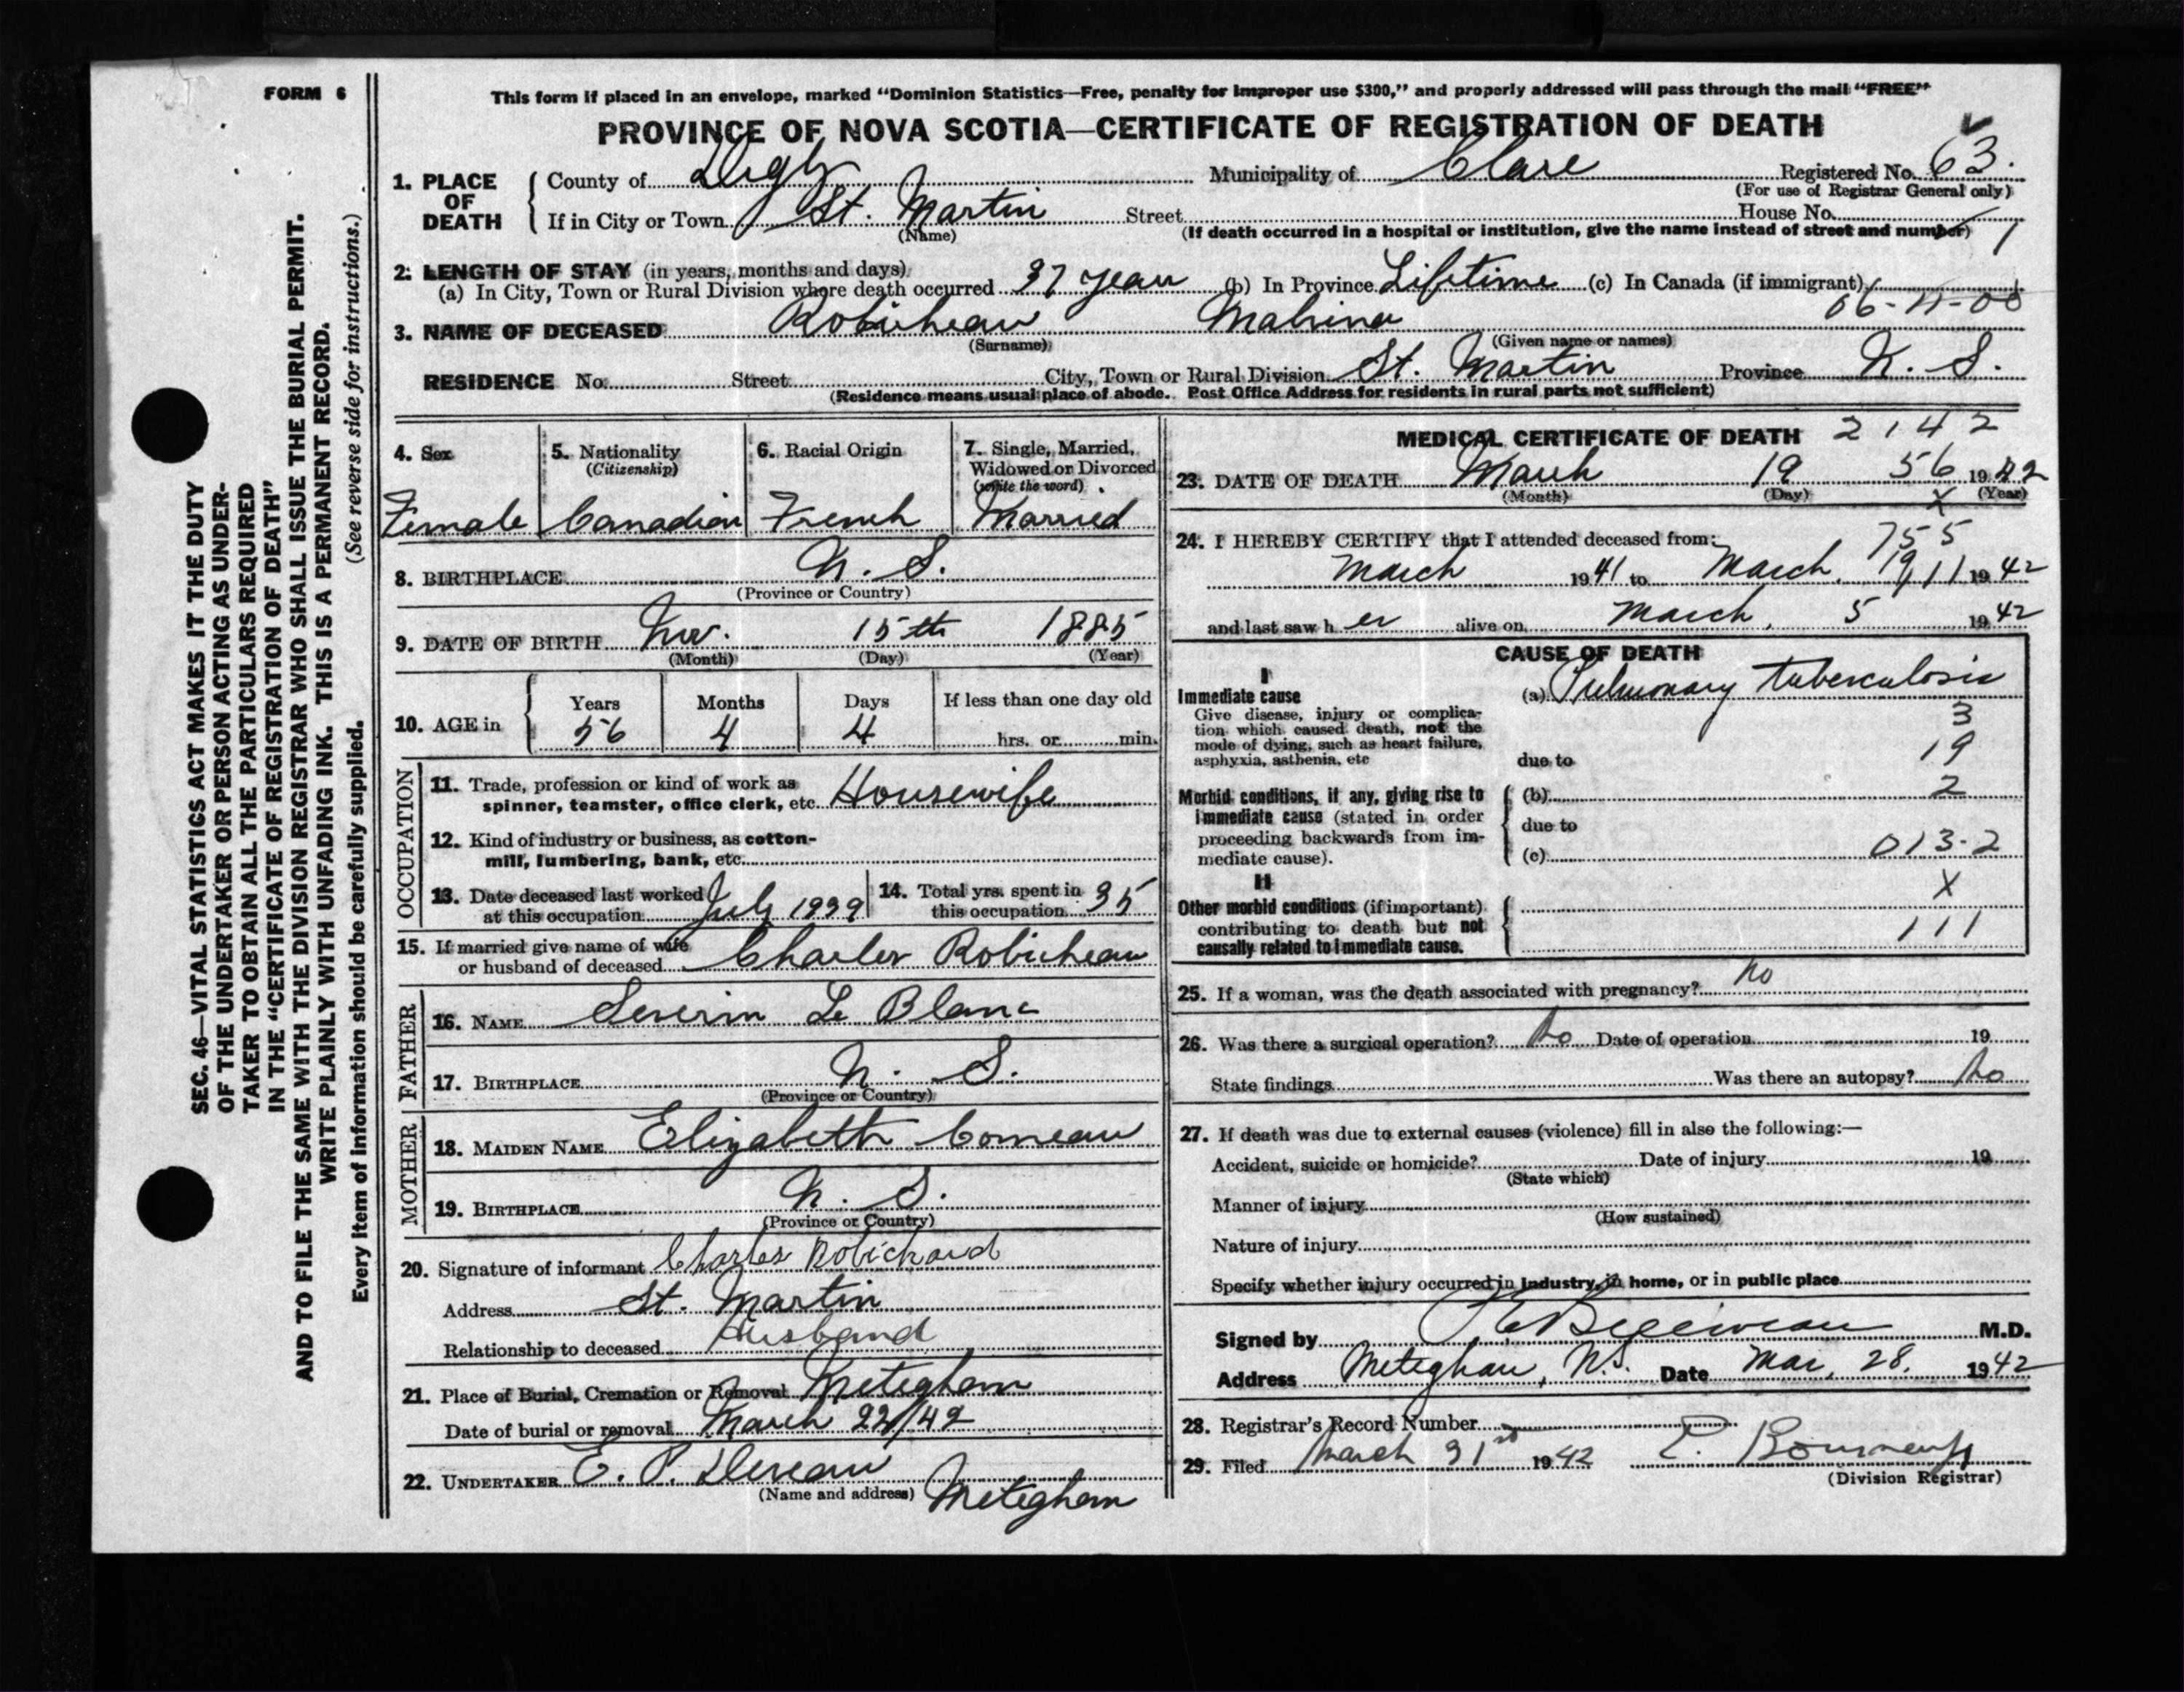 FORM 6
This form if placed in an envelope, marked “Dominion Statistics—Free, penalty for improper use $300,” and properly addressed will pass through the mail “FREE”
PROVINCE OF NOVA SCOTIA—CERTIFICATE OF REGISTRATION OF DEATH
1. PLACE OF DEATH { County of Digby Municipality of Clare Registered No. 63.
(For use of Registrar General only)
If in City or Town St. Martin Street House No.
(Name) (If death occurred in a hospital or institution, give the name instead of street and number) 1
2. LENGTH OF STAY (in years, months and days)
(a) In City, Town or Rural Division where death occurred 37 year (b) In Province Lifetime (c) In Canada (if immigrant)
3. NAME OF DECEASED Robicheau Malrina
(Surname) (Given name or names)
RESIDENCE No. Street City, Town or Rural Division St. Martin Province N. S.
(Residence means usual place of abode. Post Office Address for residents in rural parts not sufficient)
4. Sex 5. Nationality (Citizenship) 6. Racial Origin 7. Single, Married, Widowed or Divorced (write the word)
Female Canadian French Married
8. BIRTHPLACE N. S.
(Province or Country)
9. DATE OF BIRTH Nov. 15th 1885
(Month) (Day) (Year)
10. AGE in { Years Months Days If less than one day old
56 4 4 hrs. or min.
OCCUPATION
11. Trade, profession or kind of work as
spinner, teamster, office clerk, etc. Housewife
12. Kind of industry or business, as cotton-
mill, lumbering, bank, etc.
13. Date deceased last worked at this occupation July 1939 14. Total yrs. spent in this occupation 35
15. If married give name of wife
or husband of deceased Charles Robicheau
FATHER
16. NAME Severin Le Blanc
17. BIRTHPLACE N. S.
(Province or Country)
MOTHER
18. MAIDEN NAME Elizabeth Comeau
19. BIRTHPLACE N. S.
(Province or Country)
20. Signature of informant Charles Robichaud
Address St. Martin
Relationship to deceased Husband
21. Place of Burial, Cremation or Removal Meteghan
Date of burial or removal March 22/42
22. UNDERTAKER E. P. Deveau
(Name and address) Meteghan
MEDICAL CERTIFICATE OF DEATH 2142
23. DATE OF DEATH March 19 56 1942
(Month) (Day) x (Year)
24. I HEREBY CERTIFY that I attended deceased from: 755
March 1941 to March, 1942
and last saw her alive on March, 5 1942
CAUSE OF DEATH
I
Immediate cause (a) Pulmonary tuberculosis
Give disease, injury or complica-
tion which caused death, not the
mode of dying, such as heart failure,
asphyxia, asthenia, etc due to
3
19
2
Morbid conditions, if any, giving rise to
immediate cause (stated in order
proceeding backwards from im-
mediate cause). { (b)
due to
(c) 013-2
II
Other morbid conditions (if important)
contributing to death but not
causally related to immediate cause. {
X
111
25. If a woman, was the death associated with pregnancy? no
26. Was there a surgical operation? No Date of operation 19
State findings Was there an autopsy? No
27. If death was due to external causes (violence) fill in also the following:—
Accident, suicide or homicide? Date of injury 19
(State which)
Manner of injury
(How sustained)
Nature of injury
Specify whether injury occurred in industry, in home, or in public place
Signed by M.D.
Address Meteghan, N.S. Date Mar. 28. 1942
28. Registrar's Record Number
29. Filed March 31st 1942
(Division Registrar)
SEC. 46—VITAL STATISTICS ACT MAKES IT THE DUTY
OF THE UNDERTAKER OR PERSON ACTING AS UNDER-
TAKER TO OBTAIN ALL THE PARTICULARS REQUIRED
IN THE “CERTIFICATE OF REGISTRATION OF DEATH”
AND TO FILE THE SAME WITH THE DIVISION REGISTRAR WHO SHALL ISSUE THE BURIAL PERMIT.
WRITE PLAINLY WITH UNFADING INK. THIS IS A PERMANENT RECORD.
(See reverse side for instructions.)
Every item of information should be carefully supplied.